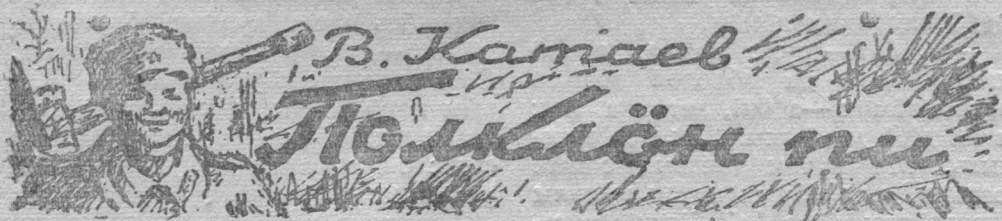 В. Катаев
Полклӧн пи